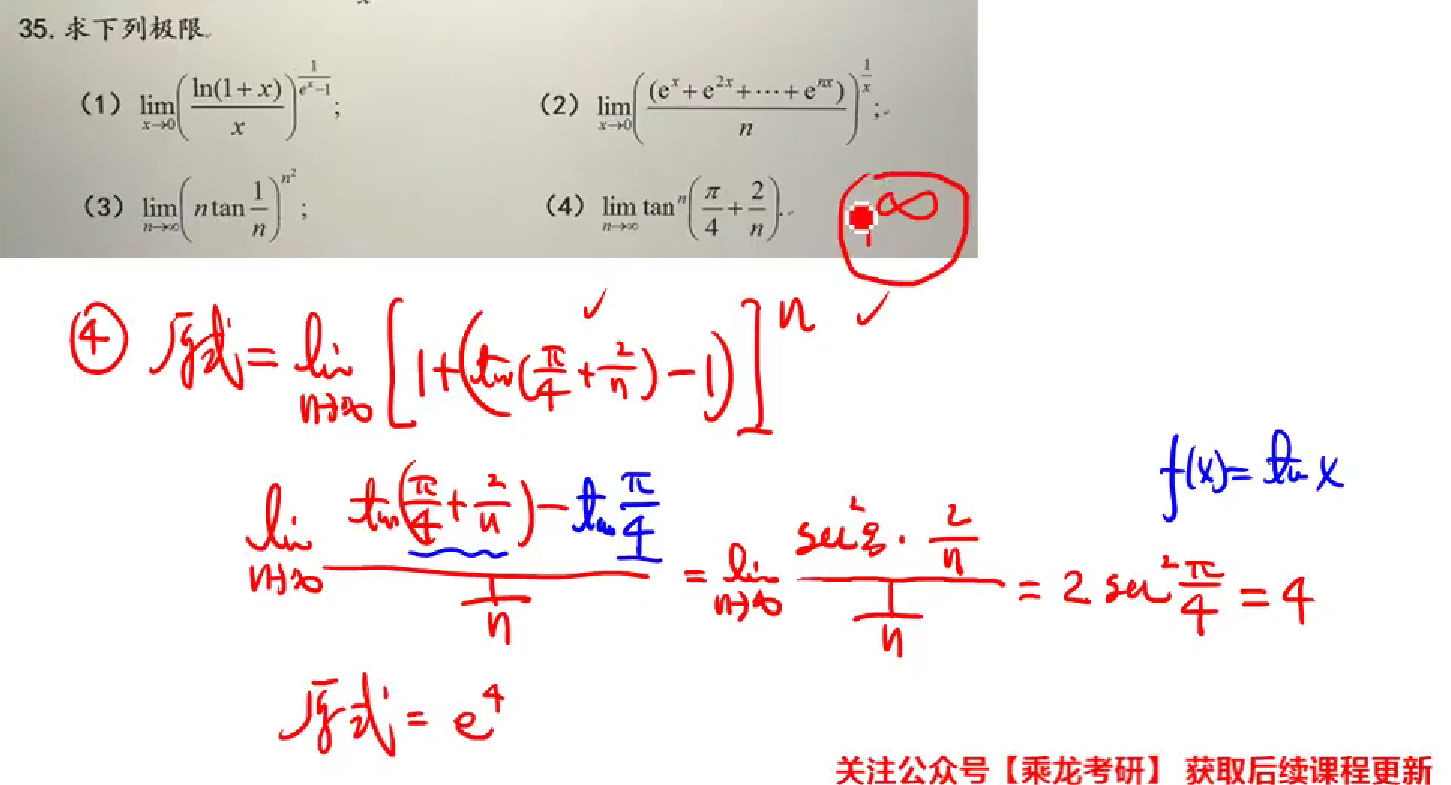 35. 求下列极限.
(1) lim x→0 (ln(1+x)/x)^(1/(e^x−1)); (2) lim x→0 ((e^x+e^(2x)+⋯+e^(nx))/n)^(1/x);
(3) lim n→∞ (n tan 1/n)^(n²); (4) lim n→∞ tan^n(π/4+2/n). 1^∞
④ 原式 = lim n→∞ [1+(tan(π/4+2/n)−1)]^n ✓
f(x)= tan x
lim n→∞ (tan(π/4+2/n)−tan π/4)/(1/n) = lim n→∞ (sec²ξ · 2/n)/(1/n) = 2 sec² π/4 = 4
原式 = e^4
关注公众号【乘龙考研】 获取后续课程更新